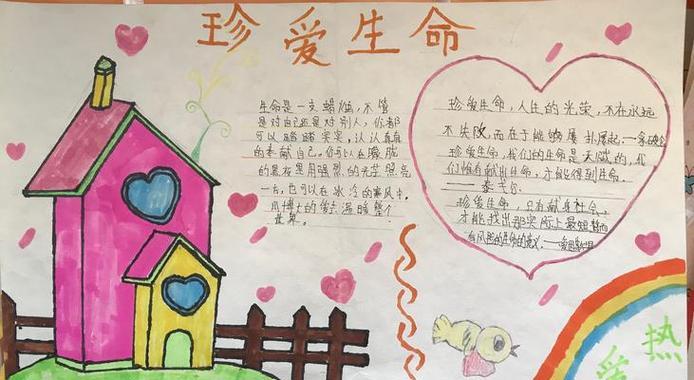 珍爱生命
生命是一支蜡烛，不管
是对自己还是对别人，你都
可以踏踏实实，认认真真
的奉献自己。你可以在朦胧
的黑夜里用强烈的光芒照亮
一片，也可以在冰冷的寒风中，
用博大的胸怀温暖整个
世界。
珍爱生命，人生的光荣，不在永远
不失败，而在于能够屡扑屡起。
珍爱生命，我们的生命是天赋的，我
们唯有献出生命，才能得到生命。
——泰戈尔
珍爱生命，只有献身社会，
才能找出那实际上最短暂而
有风险的生命的意义。——爱因斯坦
热
爱